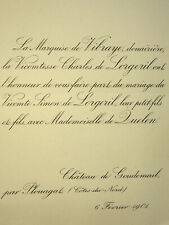 La Marquise de Vibraye, douairière,
la Vicomtesse Charles de Lorgeril ont
l'honneur de vous faire part du mariage du
Vicomte Simon de Lorgeril, leur petit-fils
et fils, avec Mademoiselle de Quelen.
Château de Goudemail,
par Plouagat, (Côtes-du-Nord)
6 Février 1901